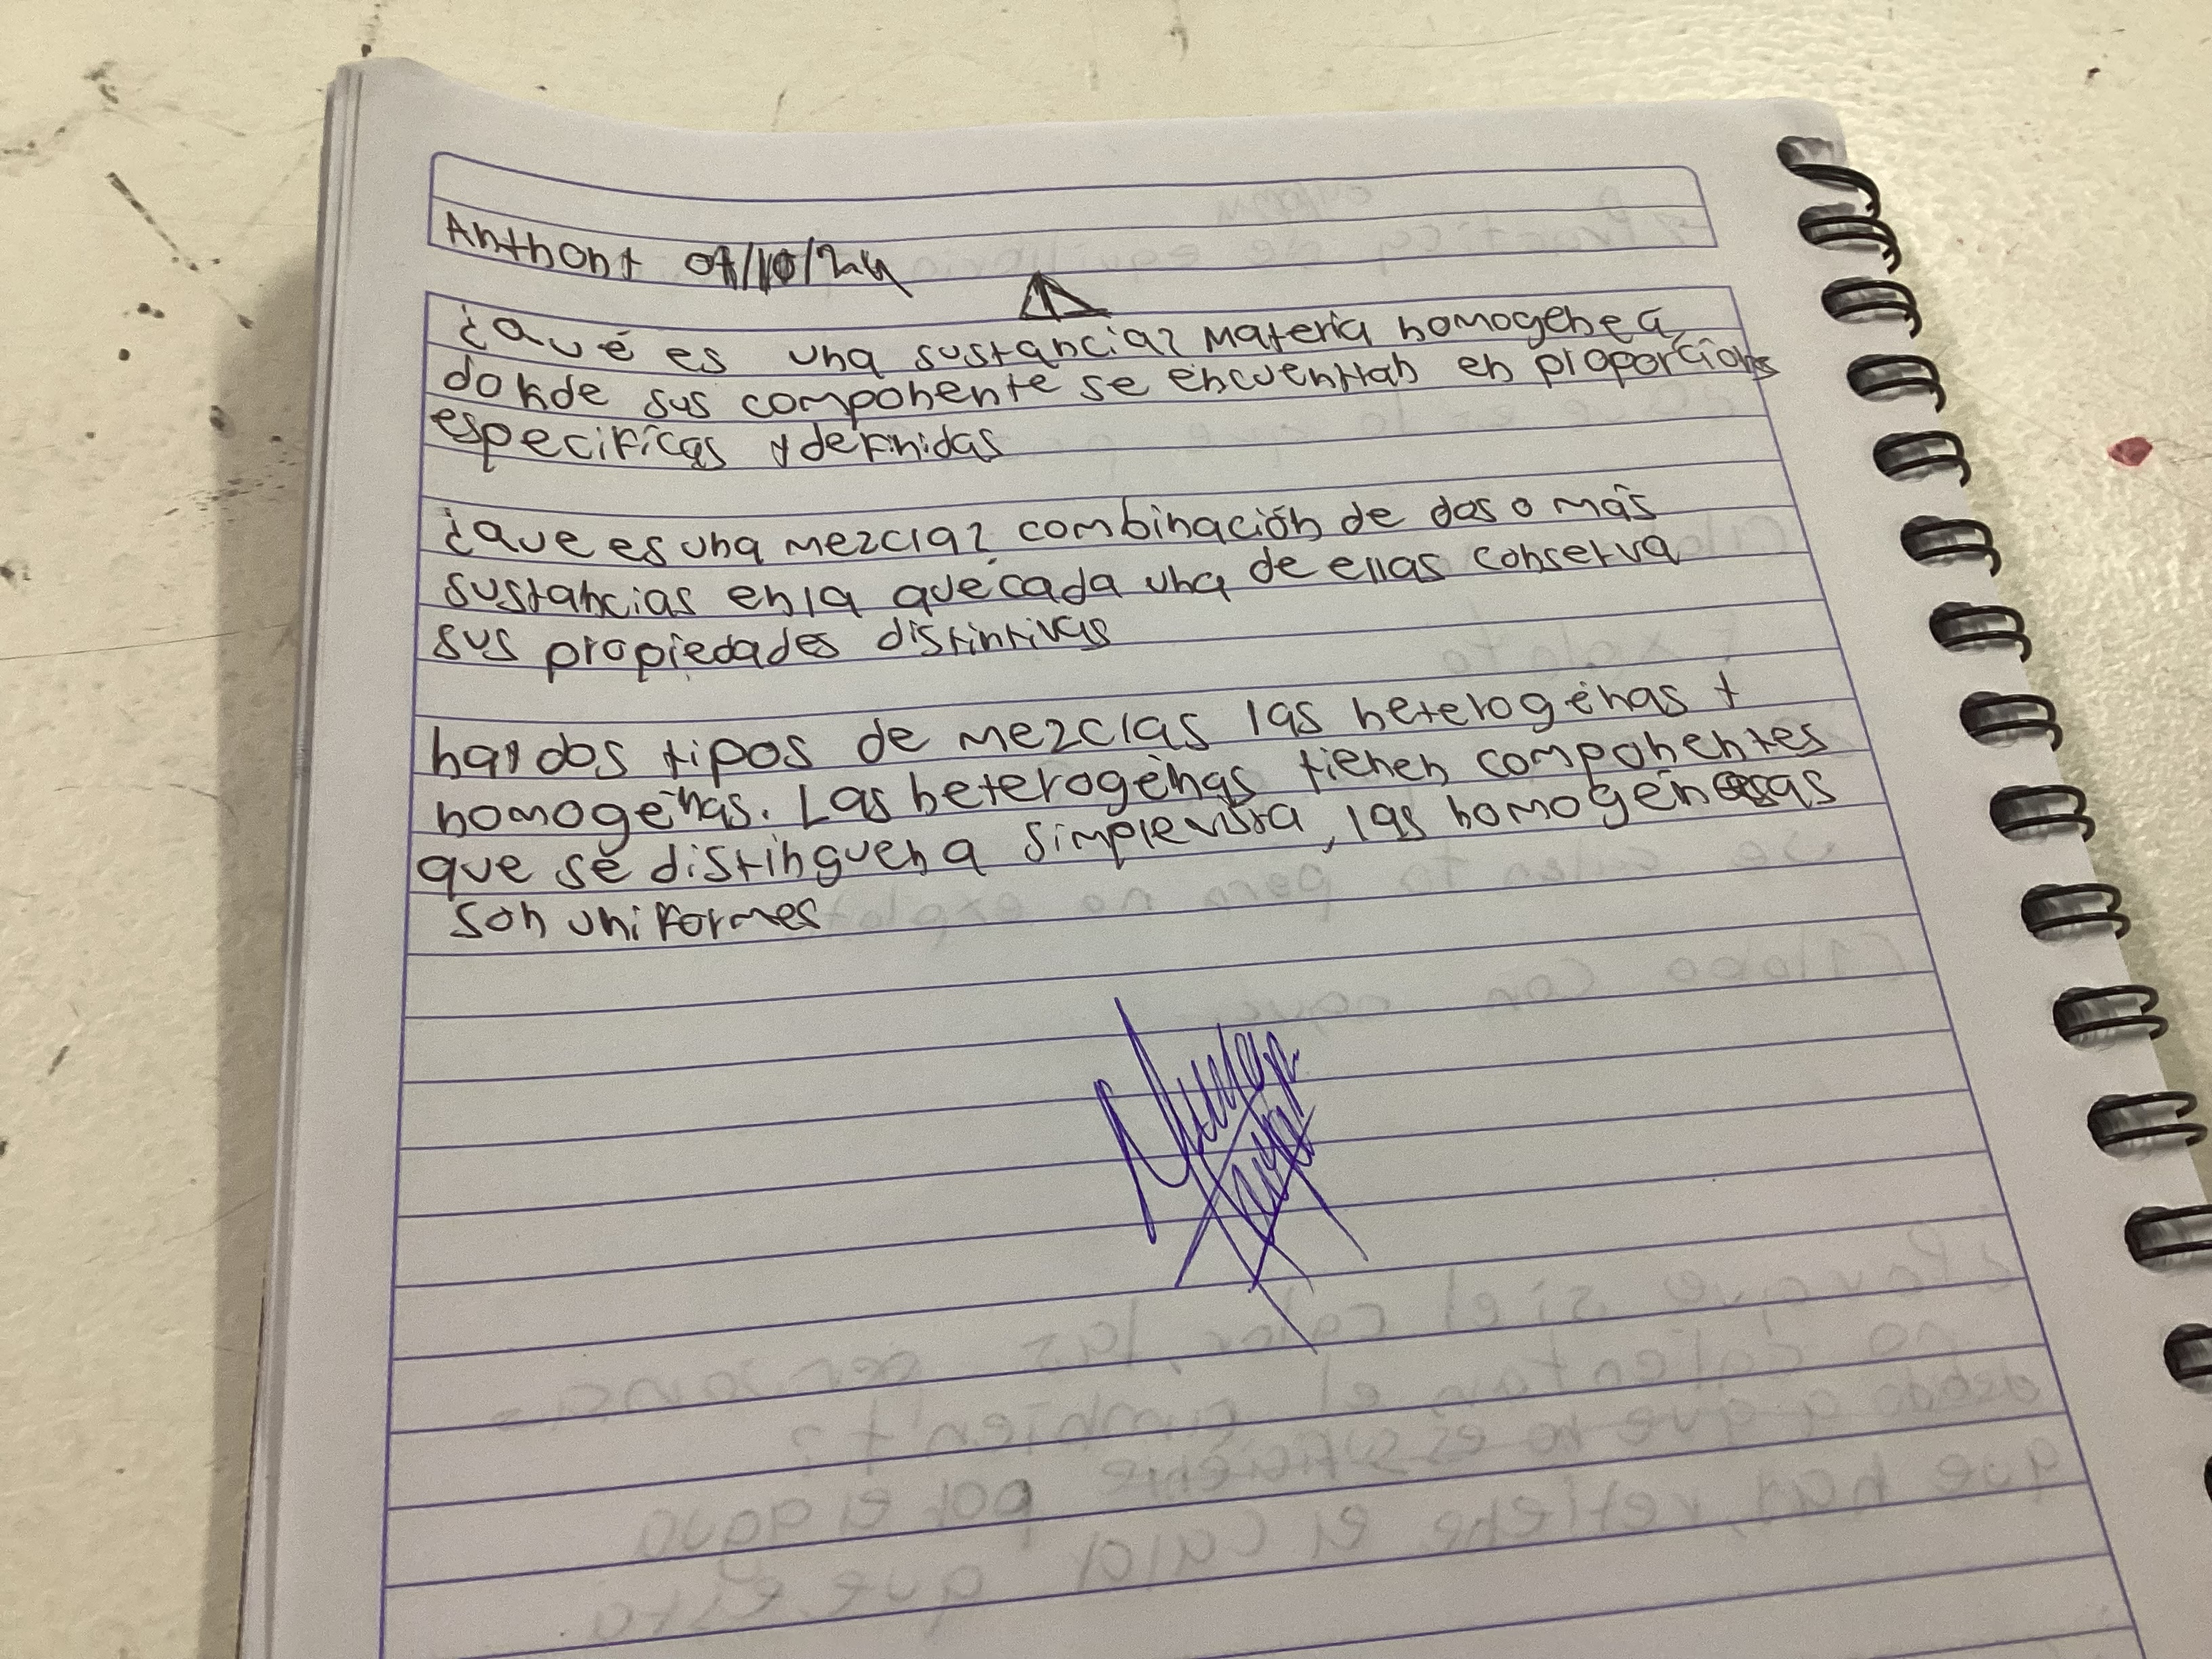 Anthony 07/10/24
¿Qué es una sustancia? Materia homogenea
donde sus componente se encuentran en proporcions
especificas y definidas
¿que es una mezcla? combinación de dos o más
sustancias en la que cada una de ellas conserva
sus propiedades distintivas
hay dos tipos de mezclas las heterogénas y
homogénas. Las heterogénas tienen componentes
que se distinguen a simple vista, las homogéneas
son uniformes